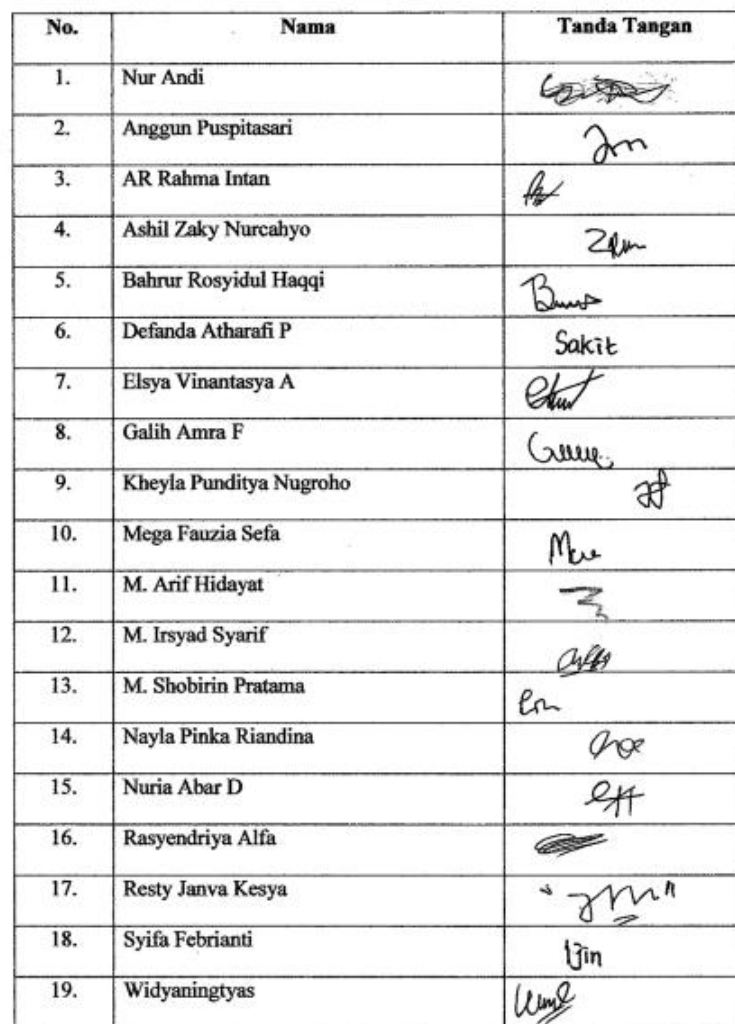 No. Nama Tanda Tangan
1. Nur Andi
2. Anggun Puspitasari
3. AR Rahma Intan
4. Ashil Zaky Nurcahyo
5. Bahrur Rosyidul Haqqi
6. Defanda Atharafi P Sakit
7. Elsya Vinantasya A
8. Galih Amra F
9. Kheyla Punditya Nugroho
10. Mega Fauzia Sefa
11. M. Arif Hidayat
12. M. Irsyad Syarif
13. M. Shobirin Pratama
14. Nayla Pinka Riandina
15. Nuria Abar D
16. Rasyendriya Alfa
17. Resty Janva Kesya
18. Syifa Febrianti Ijin
19. Widyaningtyas